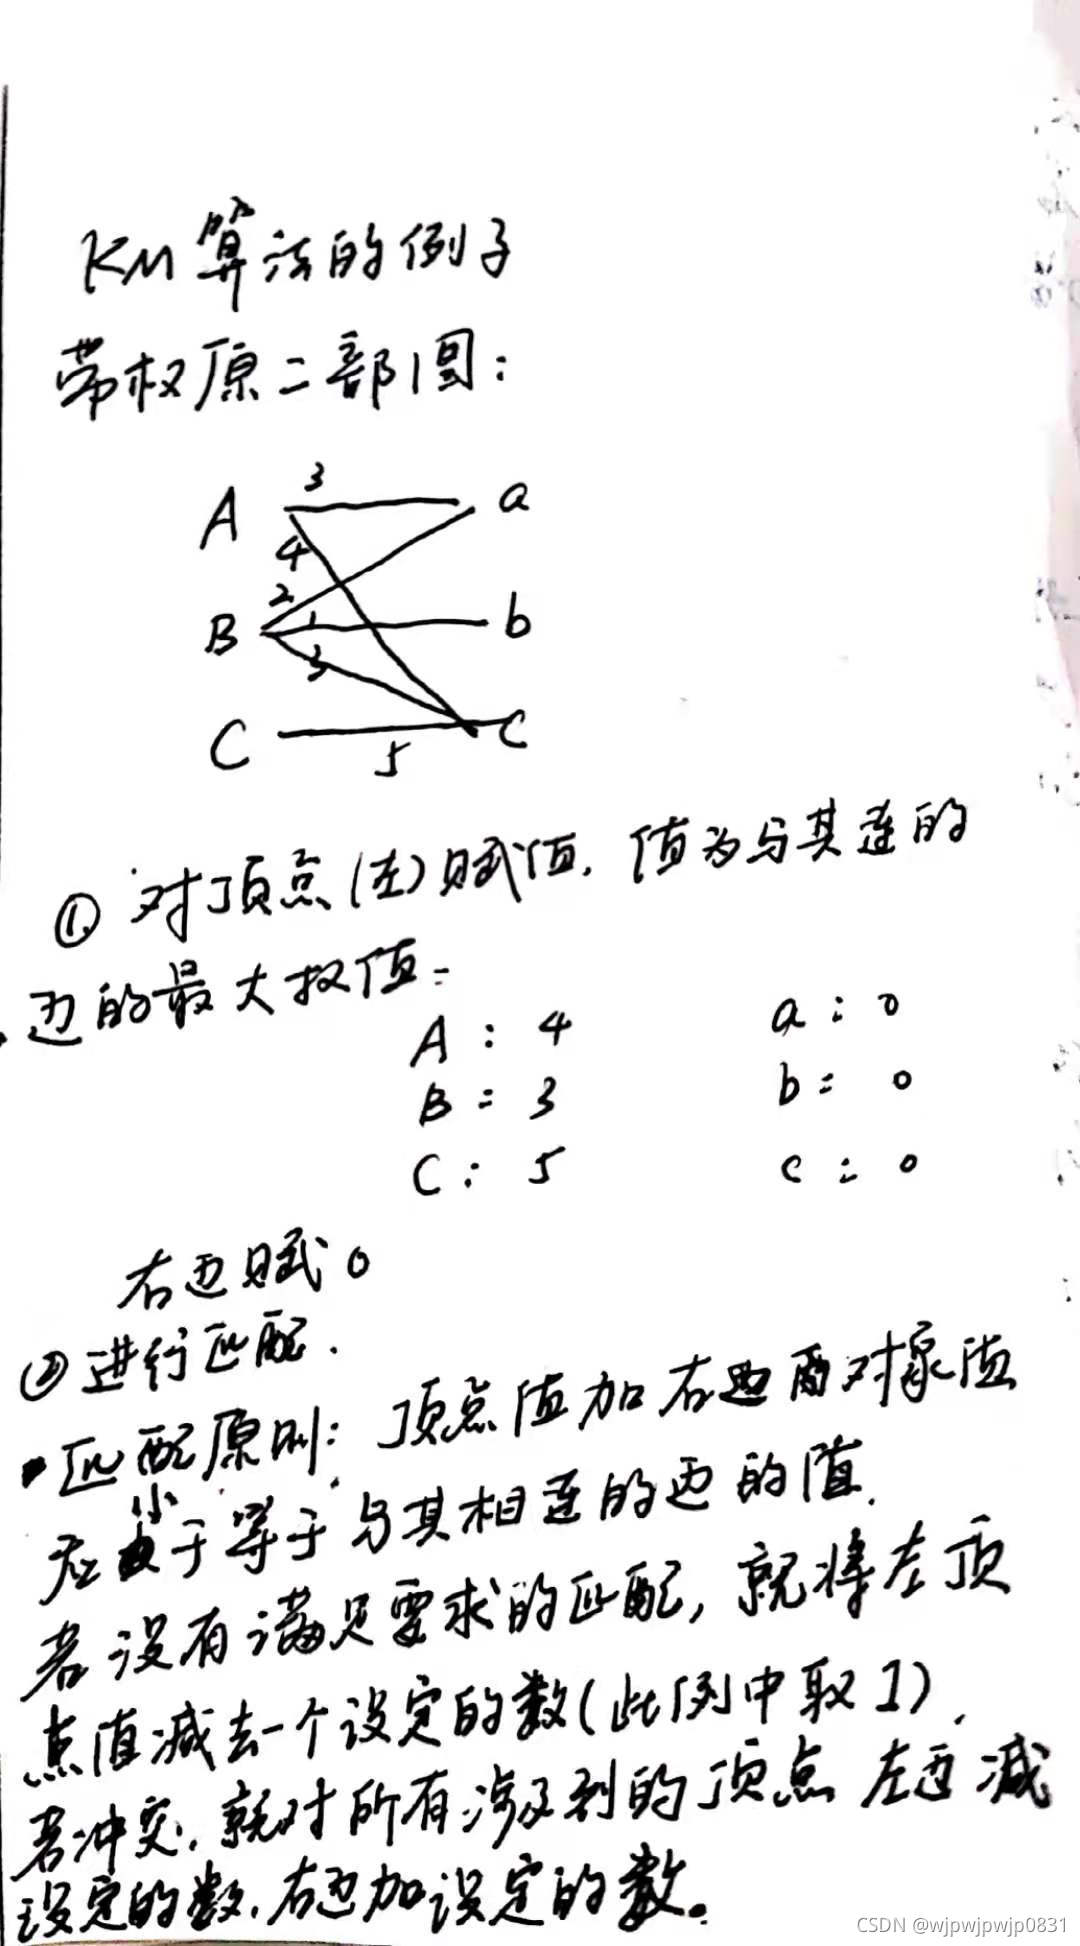 KM算法的例子
带权原二部图:
3
A a
4
2
B 1 b
3
C c
5
① 对顶点(左)赋值,值为与其连的
边的最大权值:
A: 4 a: 0
B: 3 b: 0
C: 5 c: 0
右边赋0
②进行匹配.
·匹配原则: 顶点值加右边匹配对象值
应小于等于与其相连的边的值.
若没有满足要求的匹配,就将左顶
点值减去一个设定的数(此例中取1).
若冲突,就对所有涉及到的顶点左边减
设定的数,右边加设定的数。
CSDN @wjpwjpwjp0831